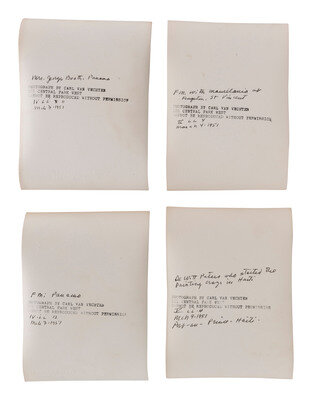 Mrs. George Booth, Panama
PHOTOGRAPH BY CARL VAN VECHTEN
CENTRAL PARK WEST
NOT BE REPRODUCED WITHOUT PERMISSION
IV LL
March 3, 1951
F.M. with
St Vincent
PHOTOGRAPH BY CARL VAN VECHTEN
CENTRAL PARK WEST
NOT BE REPRODUCED WITHOUT PERMISSION
LL
March 4, 1951
F M: Panama
PHOTOGRAPH BY CARL VAN VECHTEN
CENTRAL PARK WEST
NOT BE REPRODUCED WITHOUT PERMISSION
IV LL
1951
De Witt Peters who started the
painting craze in Haiti
PHOTOGRAPH BY CARL VAN VECHTEN
CENTRAL PARK WEST
NOT BE REPRODUCED WITHOUT PERMISSION
LL
1951
Port-au-Prince-Haiti-